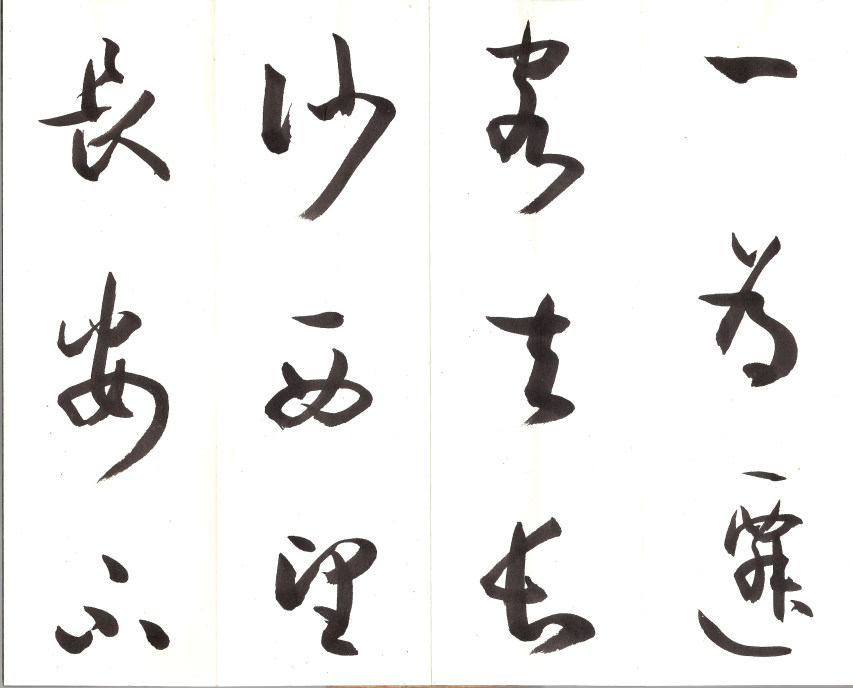 一為遷
客去長
沙西望
長安不